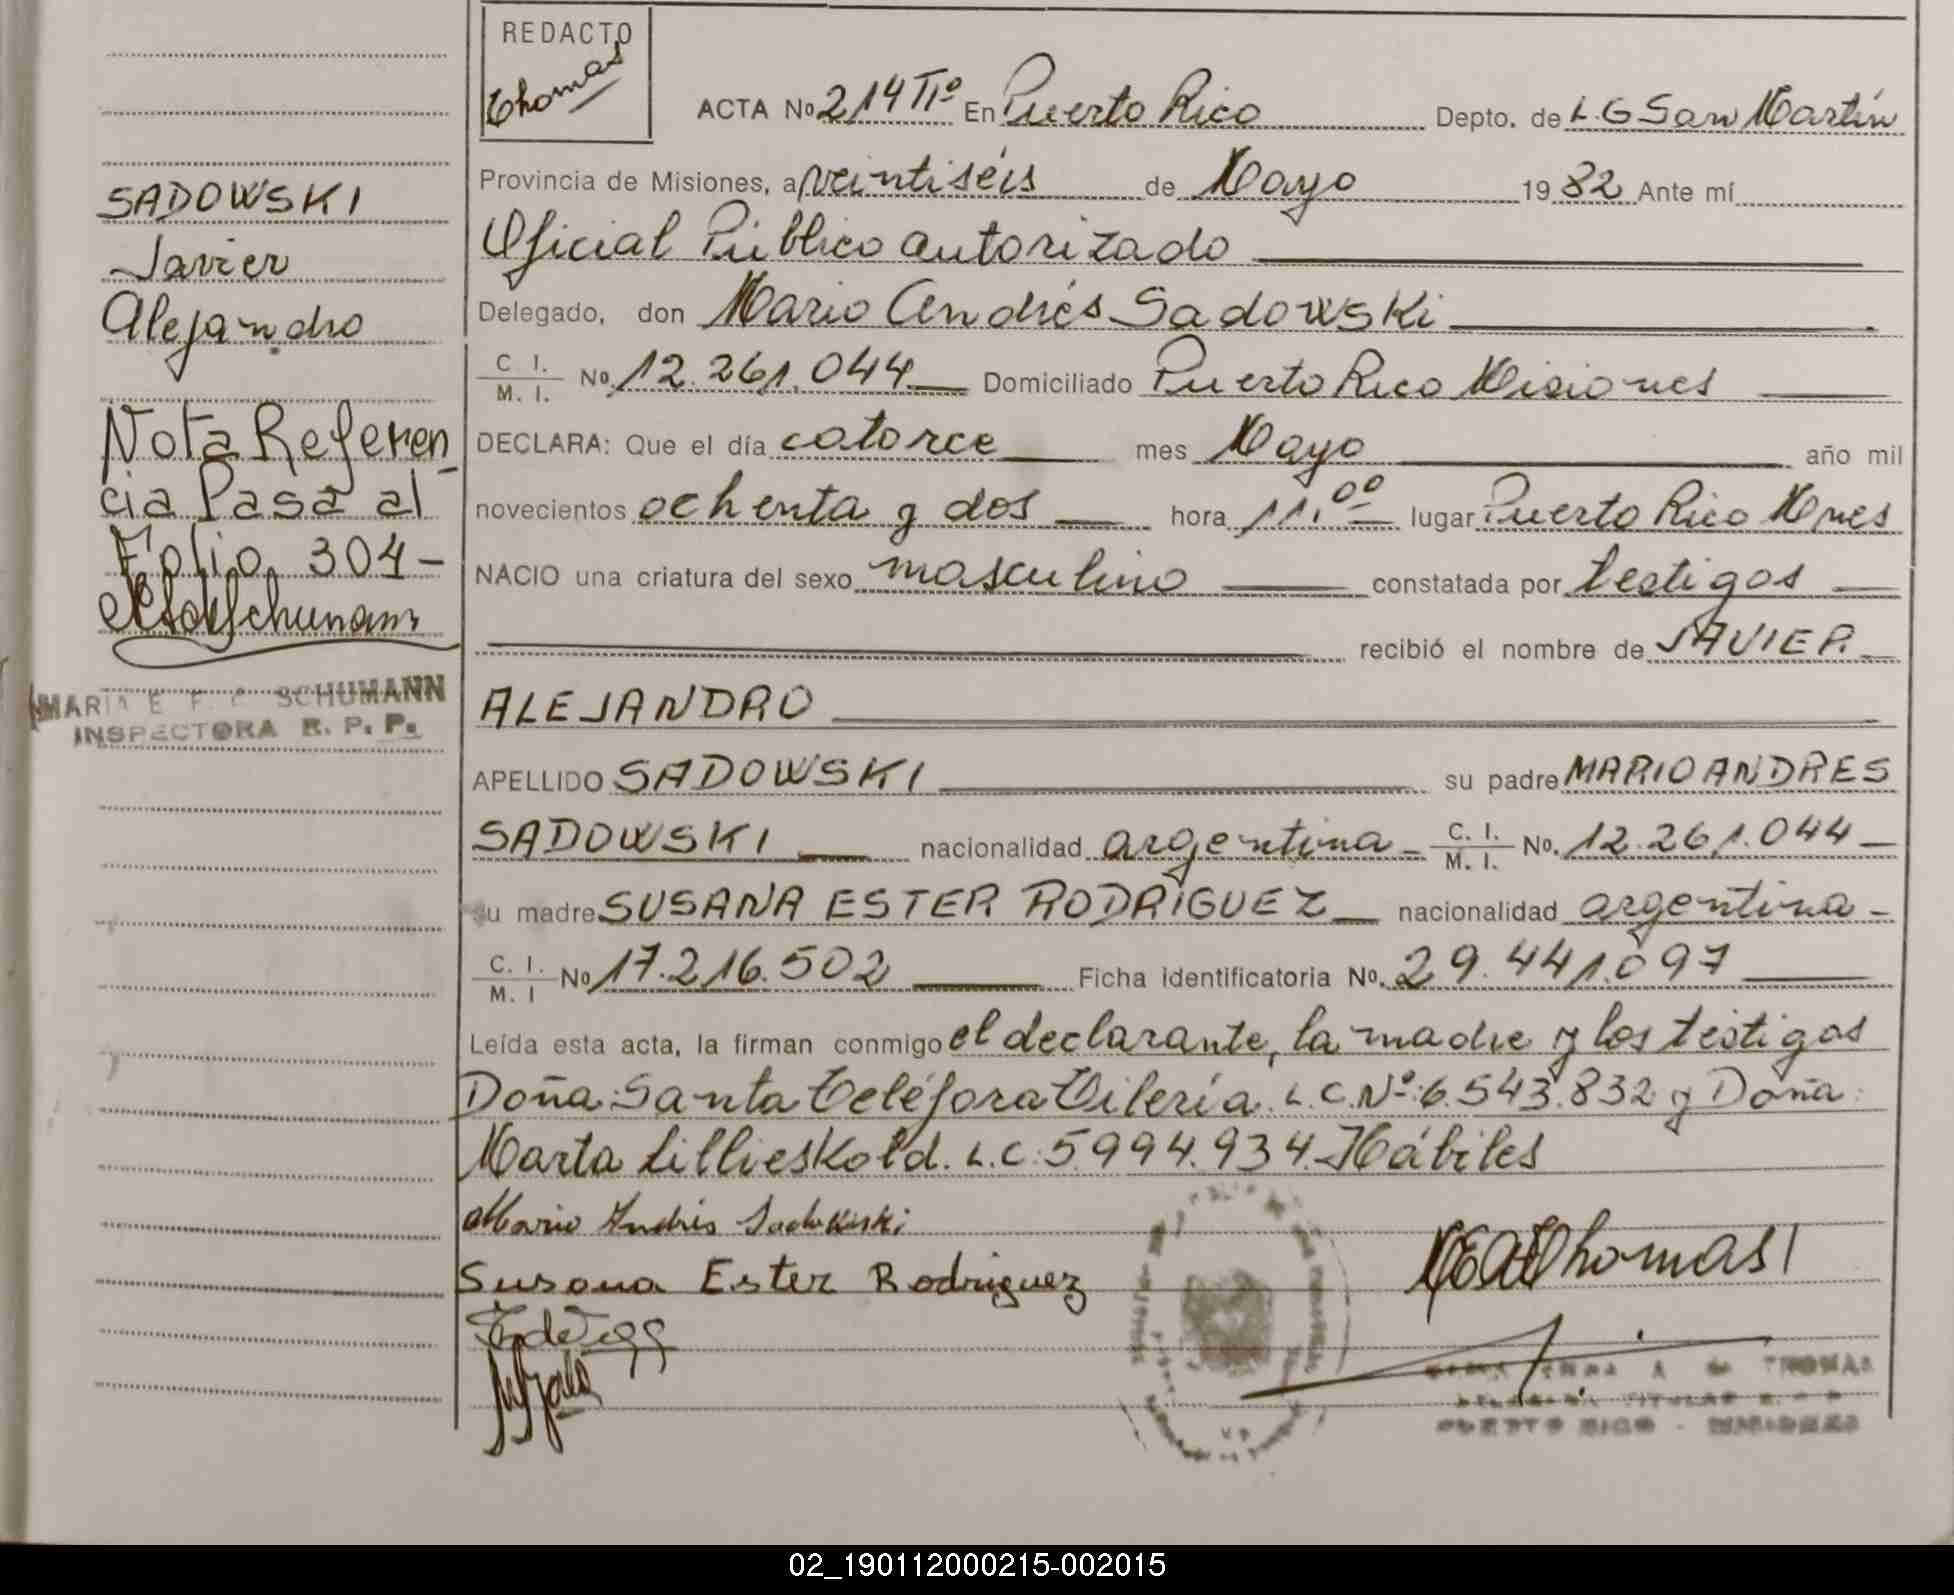 SADOWSKI
Javier
Alejandro
Nota Referen-
cia Pasa al
Folio 304-
MARIA E. F. SCHUMANN
INSPECTORA R. P. P.
REDACTO
Thomas
ACTA No 214 Tº En Puerto Rico Depto. de L. G San Martín
Provincia de Misiones, a veintiséis de Mayo 1982 Ante mí
Oficial Público autorizado
Delegado, don Mario Andrés Sadowski
C. I. / M. I. No. 12.261.044 Domiciliado Puerto Rico Misiones
DECLARA: Que el día catorce mes Mayo año mil
novecientos ochenta y dos hora 11.00 lugar Puerto Rico Mnes
NACIO una criatura del sexo masculino constatada por testigos
recibió el nombre de JAVIER
ALEJANDRO
APELLIDO SADOWSKI su padre MARIO ANDRES
SADOWSKI nacionalidad argentina - C. I. / M. I. No. 12.261.044 -
su madre SUSANA ESTER RODRIGUEZ nacionalidad argentina -
C. I. / M. I No 17.216.502 Ficha identificatoria No. 29.441.097
Leída esta acta, la firman conmigo el declarante, la madre y los testigos
Doña Santa Teléfora Vilería L.C.Nº 6.543.832 y Doña
Marta Lillieskold. L.C. 5.994.934. Hábiles
Mario Andrés Sadowski
Susana Ester Rodriguez
Thomas
THOMAS
PUERTO RICO - MISIONES
02_190112000215-002015